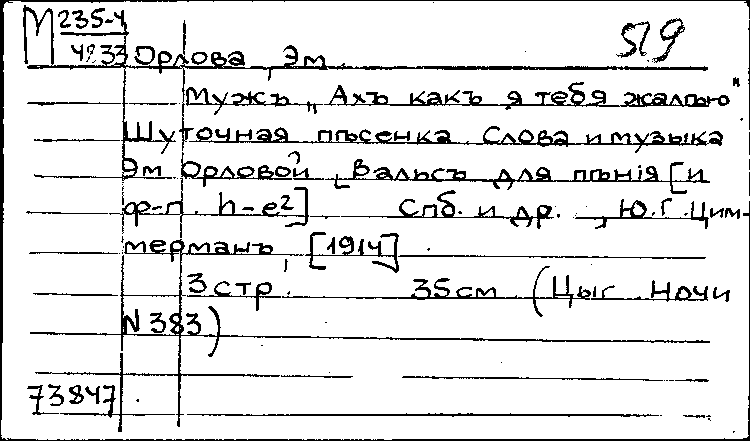 М 235-4
4233 519
Орлова, Эм.
Мужъ „Ахъ какъ я тебя жалѣю"
Шуточная пѣсенка. Слова и музыка
Эм Орловой. Вальсъ для пѣнія [и
ф-п. h-e²]. Спб. и др., Ю.Г. Цим-
мерманъ, [1914].
3 стр. 35 см. (Цыг. Ночи
N 383)
73847.